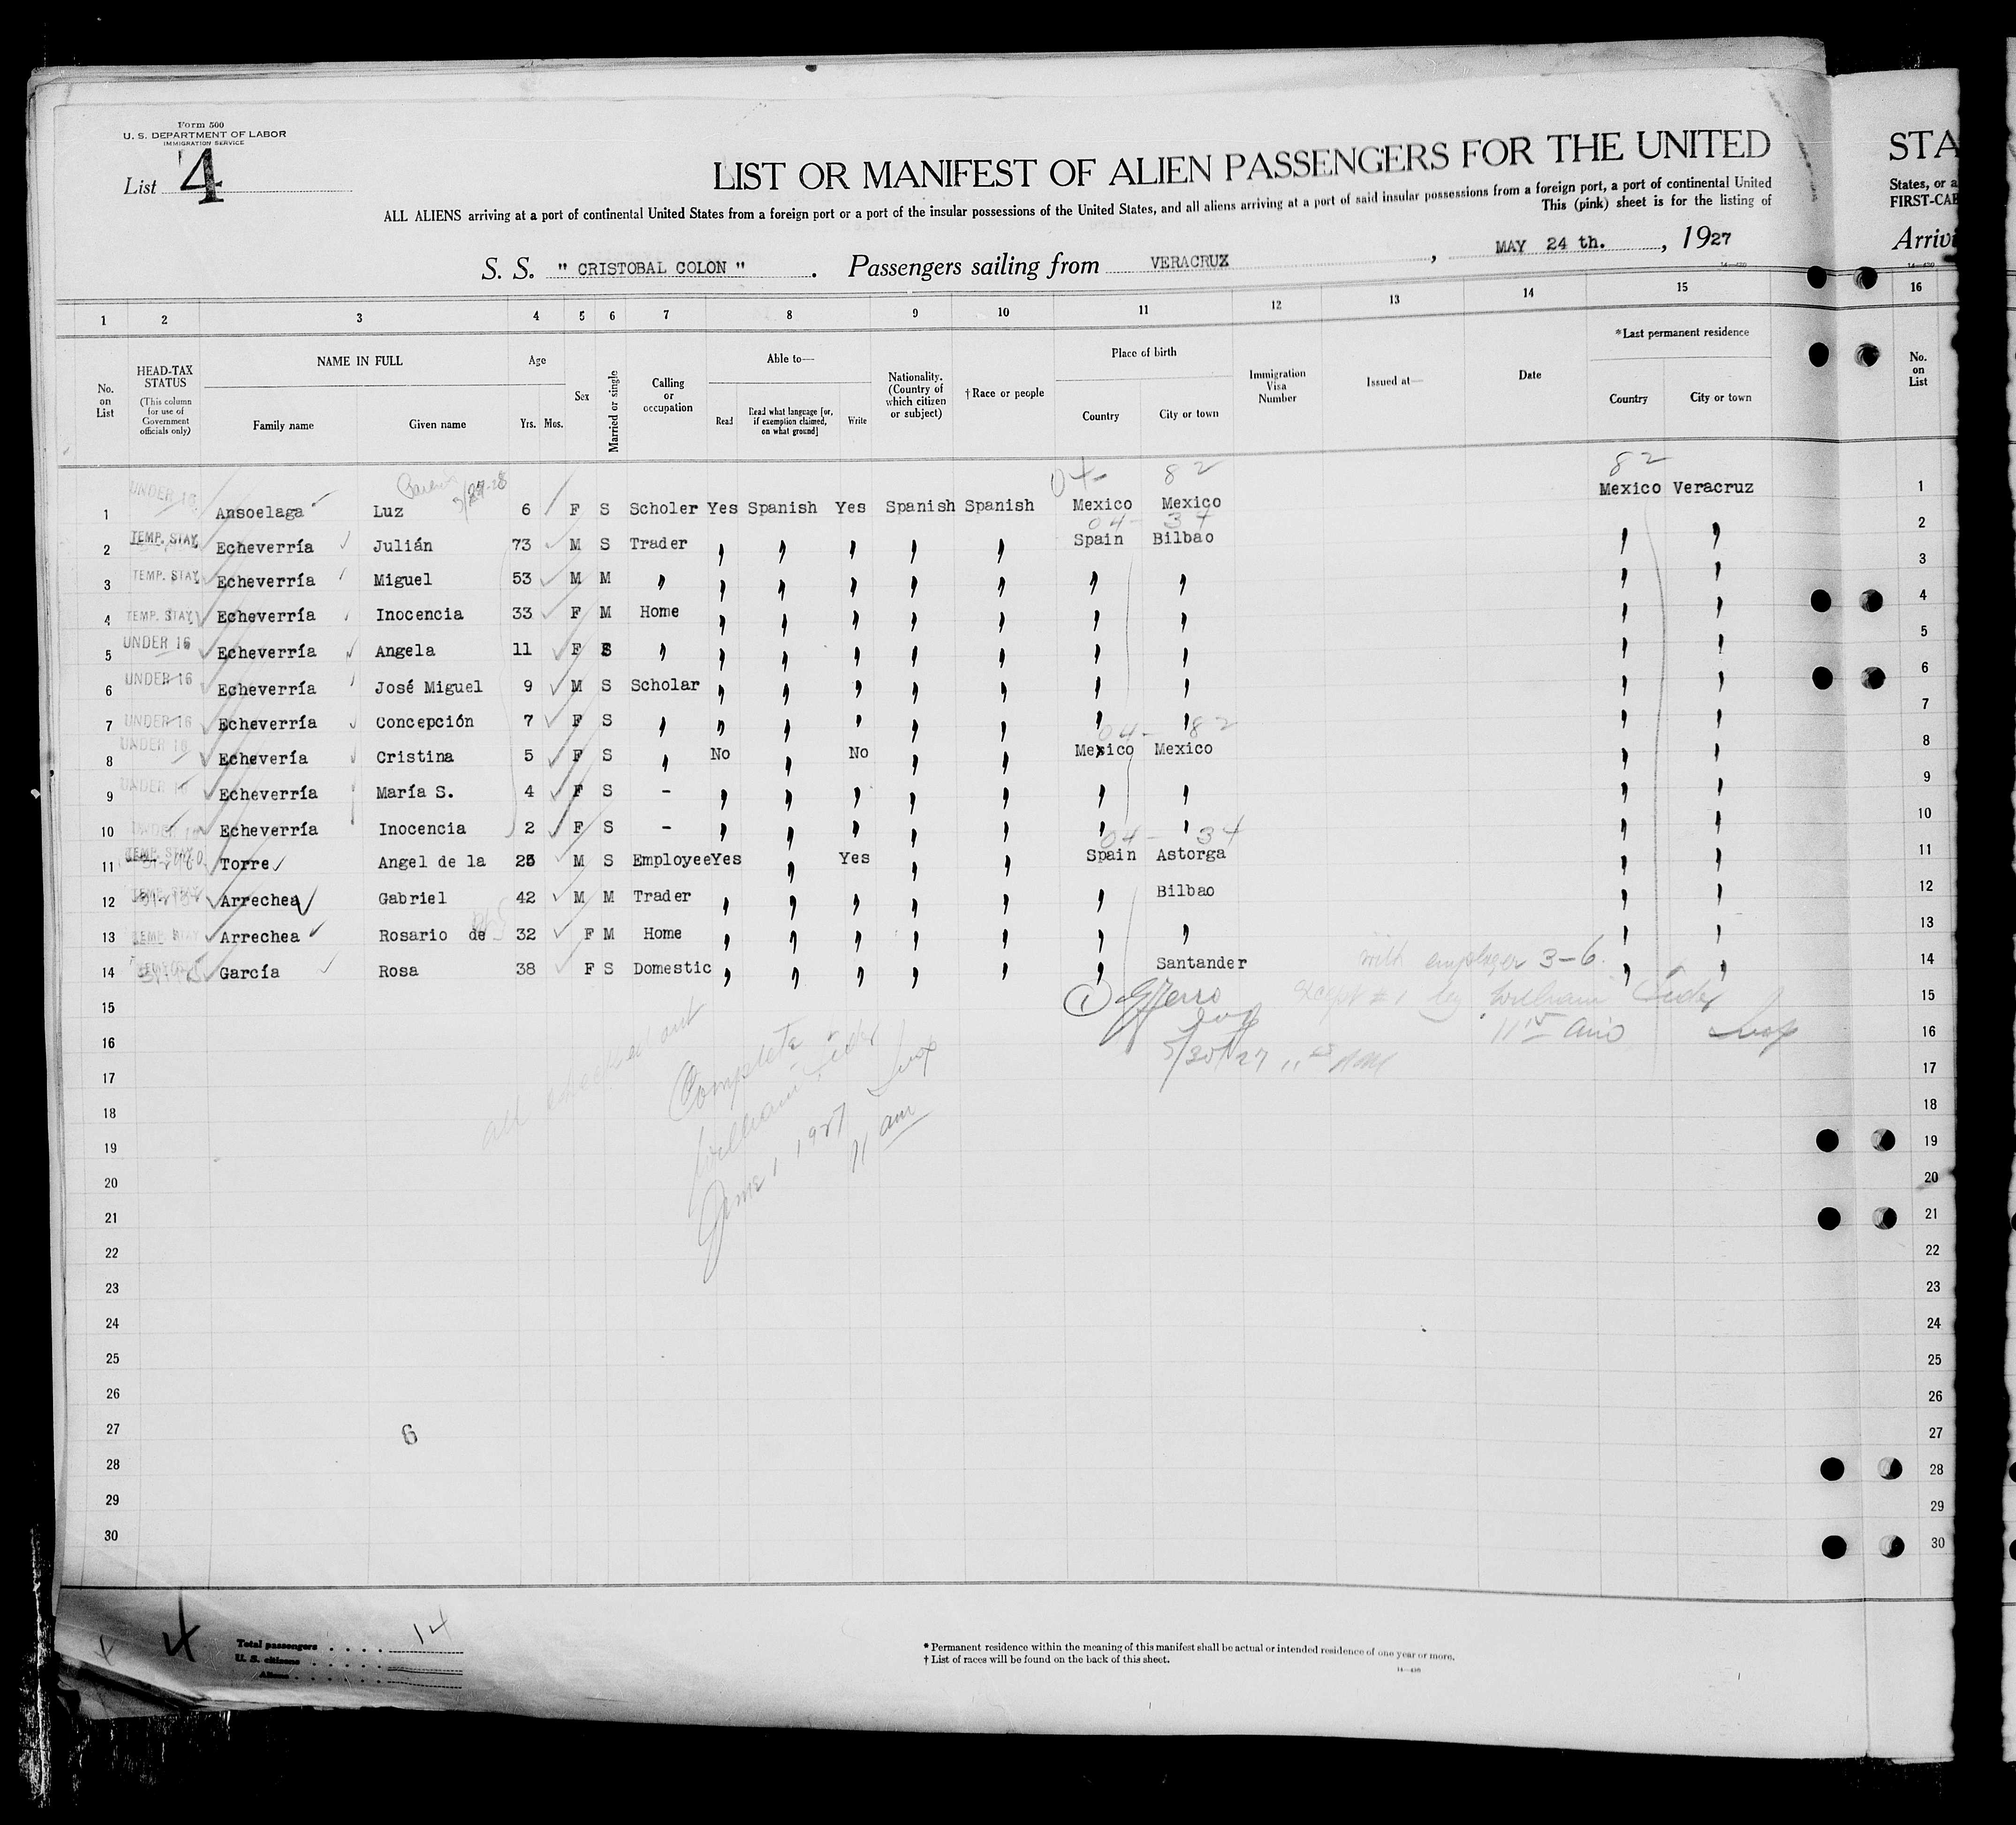 Form 500
U. S. DEPARTMENT OF LABOR
IMMIGRATION SERVICE
List 4
LIST OR MANIFEST OF ALIEN PASSENGERS FOR THE UNITED
ALL ALIENS arriving at a port of continental United States from a foreign port or a port of the insular possessions of the United States, and all aliens arriving at a port of said insular possessions from a foreign port, a port of continental United
This (pink) sheet is for the listing of
S. S. " CRISTOBAL COLON " . Passengers sailing from VERACRUZ , MAY 24 th. , 1927
STA
States, or a
FIRST-CAB
Arrivi
1 2 3 4 5 6 7 8 9 10 11 12 13 14 15 16
No. on List
HEAD-TAX STATUS
(This column for use of Government officials only)
NAME IN FULL
Family name Given name
Age
Yrs. Mos.
Sex
Married or single
Calling or occupation
Able to—
Read Read what language [or, if exemption claimed, on what ground] Write
Nationality. (Country of which citizen or subject)
† Race or people
Place of birth
Country City or town
Immigration Visa Number
Issued at—
Date
*Last permanent residence
Country City or town
No. on List
04- 82 82
1 UNDER 16 Ansoelaga Luz 6 F S Scholer Yes Spanish Yes Spanish Spanish Mexico Mexico Mexico Veracruz 1
04- 34
2 TEMP. STAY Echeverría Julián 73 M S Trader " " " " " Spain Bilbao " " 2
3 TEMP. STAY Echeverría Miguel 53 M M " " " " " " " " " " 3
4 TEMP. STAY Echeverría Inocencia 33 F M Home " " " " " " " " " 4
5 UNDER 16 Echeverría Angela 11 F S " " " " " " " " " " 5
6 UNDER 16 Echeverría José Miguel 9 M S Scholar " " " " " " " " " 6
7 UNDER 16 Echeverría Concepción 7 F S " " " " " " " " " " 7
04- 82
8 UNDER 16 Echevería Cristina 5 F S " No " No " " Mexico Mexico " " 8
9 UNDER 16 Echeverría María S. 4 F S - " " " " " " " " " 9
10 UNDER 16 Echeverría Inocencia 2 F S - " " " " " " " " " 10
04- 34
11 TEMP. STAY Torre Angel de la 25 M S Employee Yes " Yes " " Spain Astorga " " 11
12 TEMP. STAY Arrechea Gabriel 42 M M Trader " " " " " " Bilbao " " 12
13 TEMP. STAY Arrechea Rosario de 32 F M Home " " " " " " " " " 13
14 García Rosa 38 F S Domestic " " " " " " Santander " " 14
with employer 3-6.
15 1 except #1 by William 15
16 Insp 16
17 5/30/27 17
all checked out
Complete
William
Insp
June 1, 1927
11 am
18 18
19 19
20 20
21 21
22 22
23 23
24 24
25 25
26 26
27 6 27
28 28
29 29
30 30
4
Total passengers 14
U. S. citizens
Aliens
* Permanent residence within the meaning of this manifest shall be actual or intended residence of one year or more.
† List of races will be found on the back of this sheet.